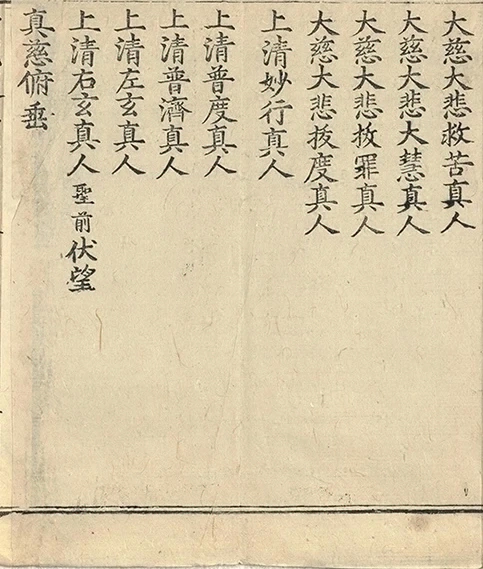 大慈大悲救苦真人
大慈大悲大慧真人
大慈大悲救罪真人
大慈大悲拔度真人
上清妙行真人
上清普度真人
上清普濟真人
上清左玄真人
上清右玄真人聖前伏望
真慈俯垂